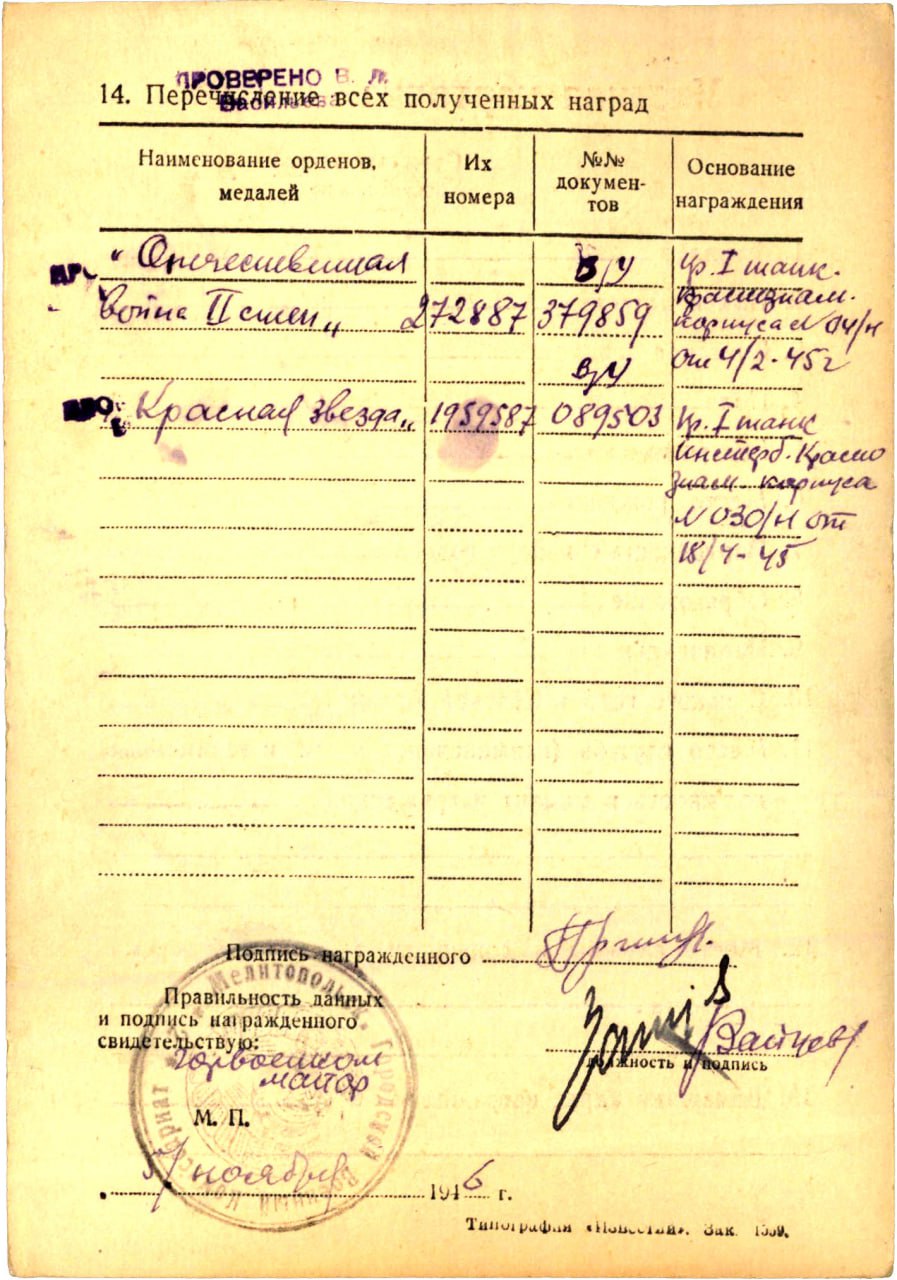 ПРОВЕРЕНО В. Л.
Васильева
14. Перечисление всех полученных наград
Наименование орденов, медалей
Их номера
№№ документов
Основание награждения
„Отечественная
в/у
Пр. I танк.
война II степ„
272887
379859
Краснознам.
корпуса № 04/н
в/у
от 4/2-45г
Красная звезда„
1959587
089503
Пр. I танк
Инстерб. Красно
знам. корпуса
№ 030/н от
18/4-45
Подпись награжденного
Правильность данных
и подпись награжденного
свидетельствую:
Горвоенком
майор
Зайцев
должность и подпись
М. П.
Мелитопольск. Городской Военный Комиссариат
5/ ноября 1946 г.
Типография «Известий». Зак. 1559.